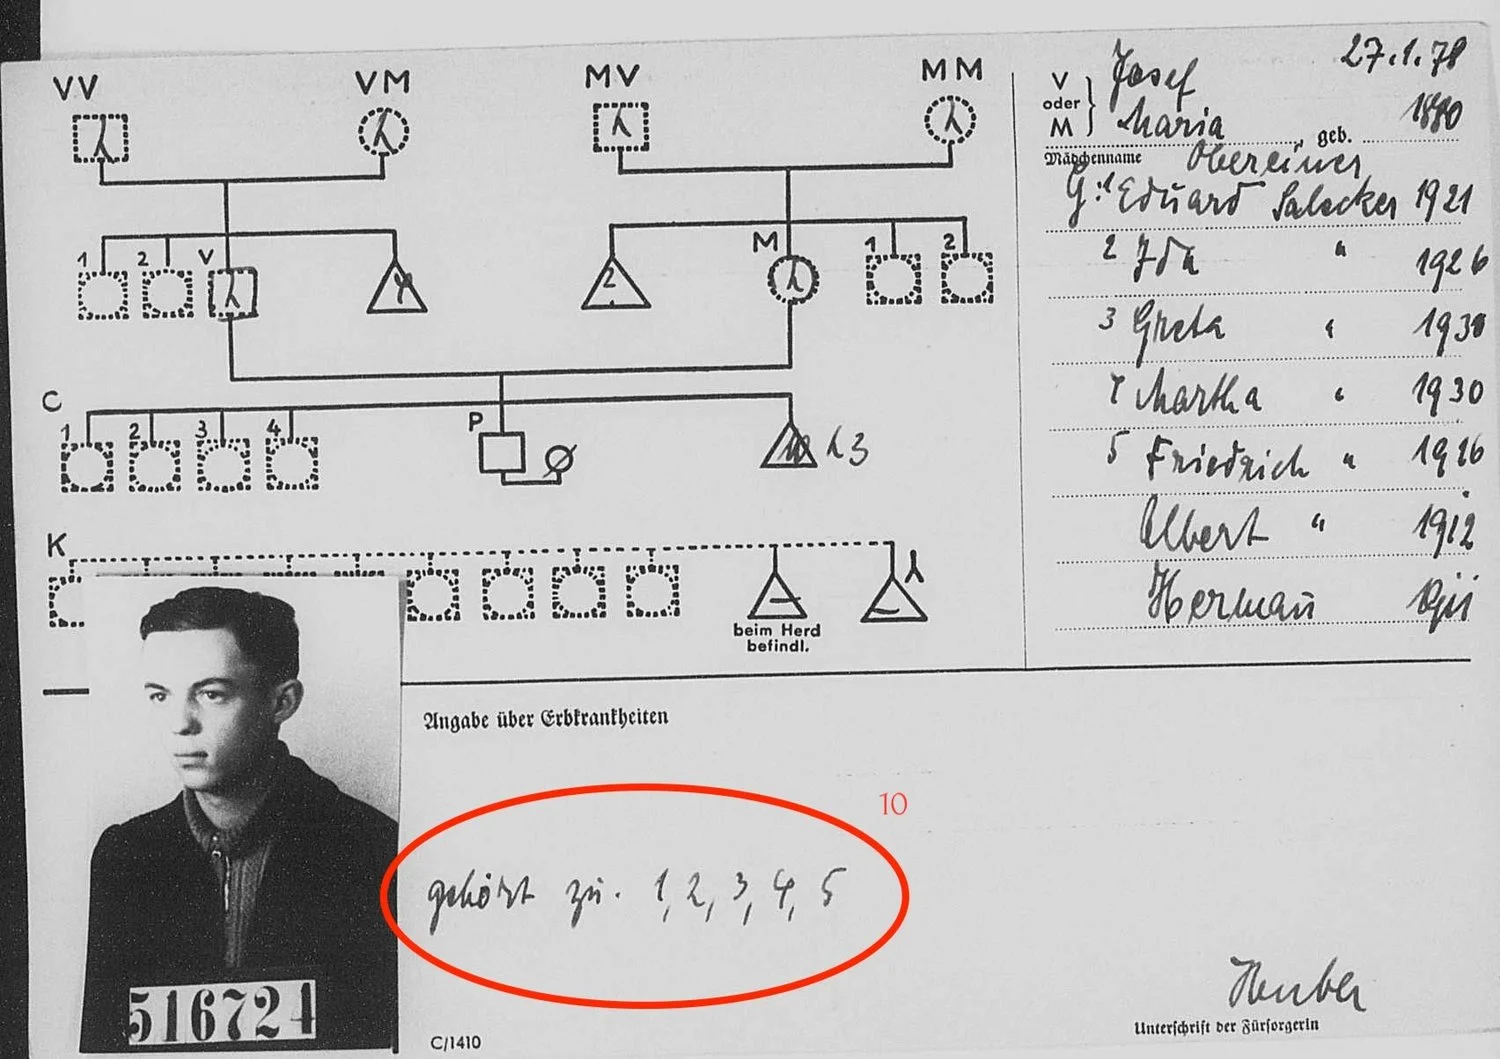 VV VM MV MM
V oder M } Josef 27.1.78
Maria , geb. 1880
Mädchenname Obereiner
G: 1 Eduard Salecker 1921
2 Ida " 1926
3 Greta " 1930
4 Martha " 1930
5 Friedrich " 1926
Albert " 1912
Herman
1 2 V 4 2 M 1 2
C
1 2 3 4 P 3
K
beim Herd
befindl.
Angabe über Erbkrankheiten
10
gehört zu. 1, 2, 3, 4, 5
516724
Huber
Unterschrift der Fürsorgerin
C/1410